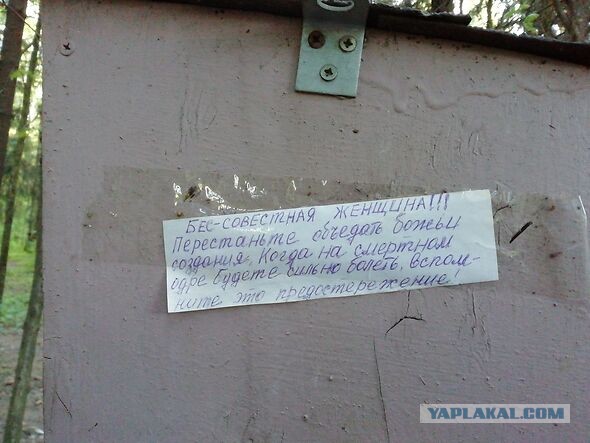 БЕС-СОВЕСТНАЯ ЖЕНЩИНА!!!
Перестаньте объедать божьи
создания. Когда на смертном
одре будете сильно болеть, вспом-
ните это предостережение!
YAPLAKAL.COM